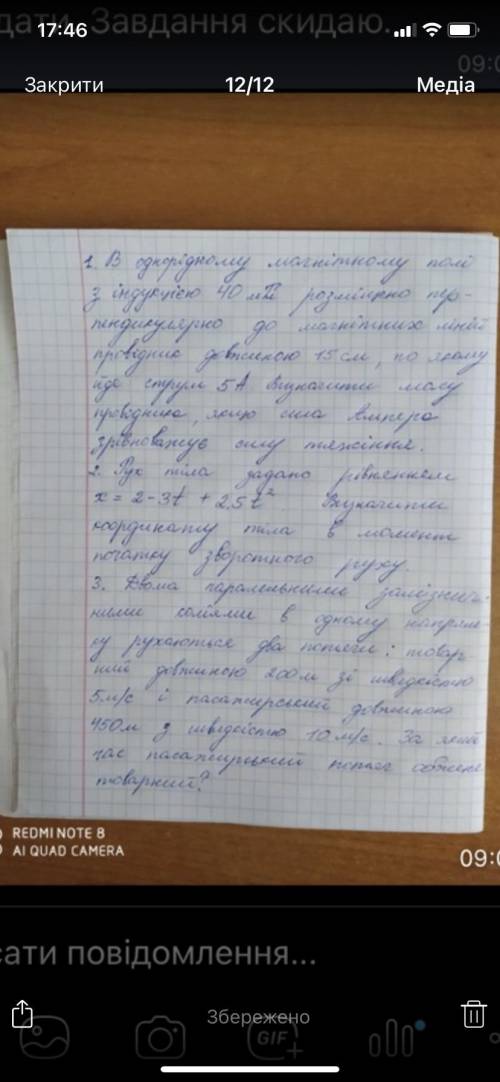 дати. Завдання скидаю.
17:46
09:0
Закрити 12/12 Медіа
1. В однорідному магнітному полі
з індукцією 40 мТл розміщено пер-
пендикулярно до магнітних ліній
провідник довжиною 15 см, по якому
йде струм 5А. Визначити масу
провідника, якщо сила Ампера
зрівноважує силу тяжіння.
2. Рух тіла задано рівнянням
x = 2 - 3t + 2,5t² Визначити
координату тіла в момент
початку зворотного руху.
3. Двома паралельними залізнич-
ними коліями в одному напрям-
ку рухаються два потяги: товар-
ний довжиною 200м зі швидкістю
5м/с і пасажирський довжиною
450м з швидкістю 10 м/с. За який
час пасажирський потяг обжене
товарний?
REDMI NOTE 8
AI QUAD CAMERA
09:0
сати повідомлення...
Збережено
GIF